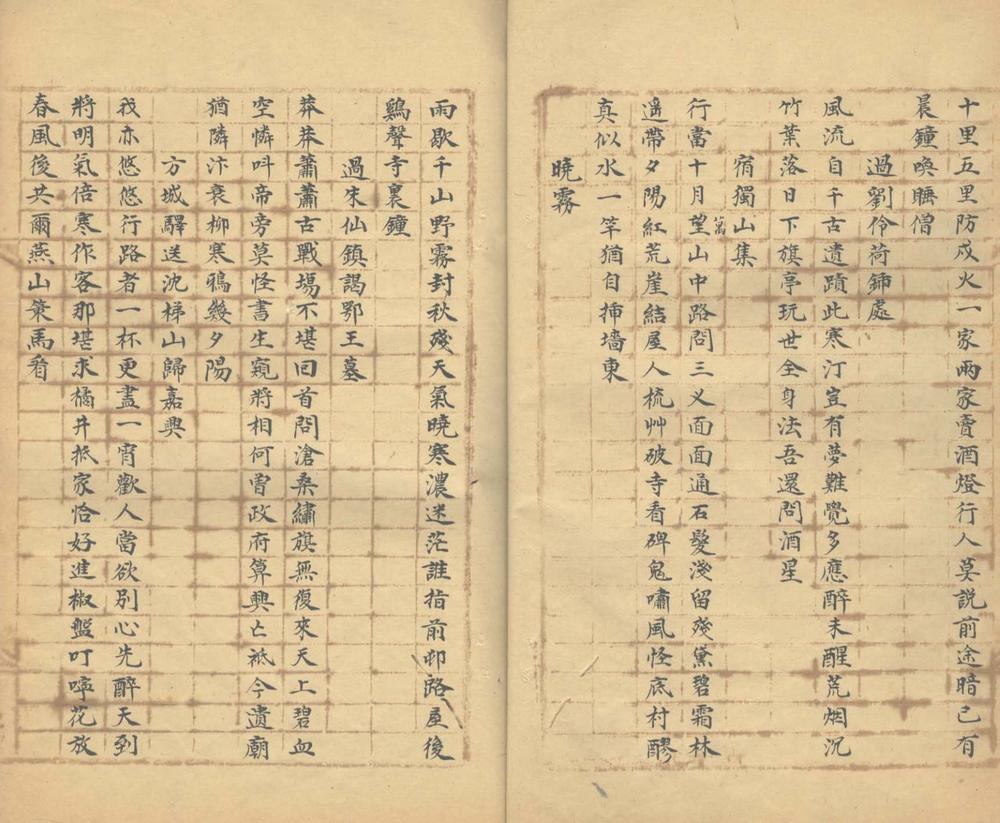 十里五里防戍火一家兩家賣酒燈行人莫説前途暗已有
晨鐘喚睡僧
過劉伶荷鍤處
風流自千古遺蹟此寒汀豈有夢難覺多應醉未醒荒烟沉
竹葉落日下旗亭玩世全身法吾還問酒星
宿獨山集
行當十月望山中路問三义面面通石髮淺留殘黛碧霜林
遥帶夕陽紅荒崖結屋人梳艸破寺看碑鬼嘯風怪底村醪
真似水一竿猶自揷墻東
曉霧
雨歇千山野霧封秋殘天氣曉寒濃迷茫誰指前邨路屋後
鷄聲寺裏鐘
過朱仙鎮謁鄂王墓
莽莽蕭蕭古戰塲不堪回首問滄桑繡旗無復來天上碧血
空憐呌帝旁莫怪書生窺將相何曾政府算興亡祗今遺廟
猶隣汴衰柳寒鴉幾夕陽
方城驛送沈梯山歸嘉興
我亦悠悠行路者一杯更盡一宵歡人當欲別心先醉天到
將明氣倍寒作客那堪求橘井抵家恰好進椒盤叮嚀花放
春風後共爾燕山策馬看